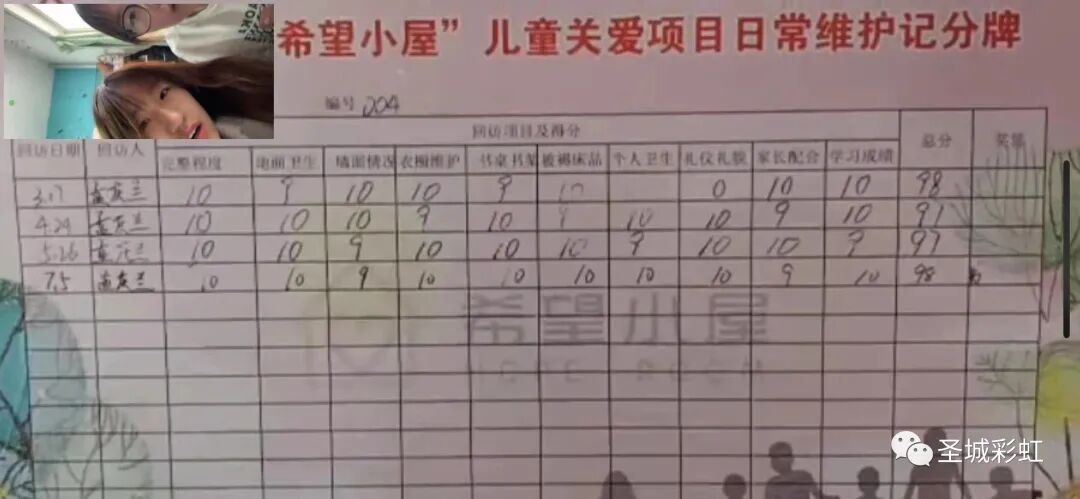 希望小屋”儿童关爱项目日常维护记分牌
编号 004
回访日期 回访人 回访项目及得分 总分 奖惩
完整程度 地面卫生 墙面情况 衣橱维护 书桌书架 被褥床品 个人卫生 礼仪礼貌 家长配合 学习成绩
3.17 兰 10 9 10 10 9 10 0 10 10 98
4.24 兰 10 10 10 9 10 9 10 10 9 10 97
5.26 兰 10 10 9 10 10 10 9 10 10 9 97
7.5 兰 10 10 9 10 10 10 10 10 9 10 98
希望小屋
HOPE ROOM
圣城彩虹